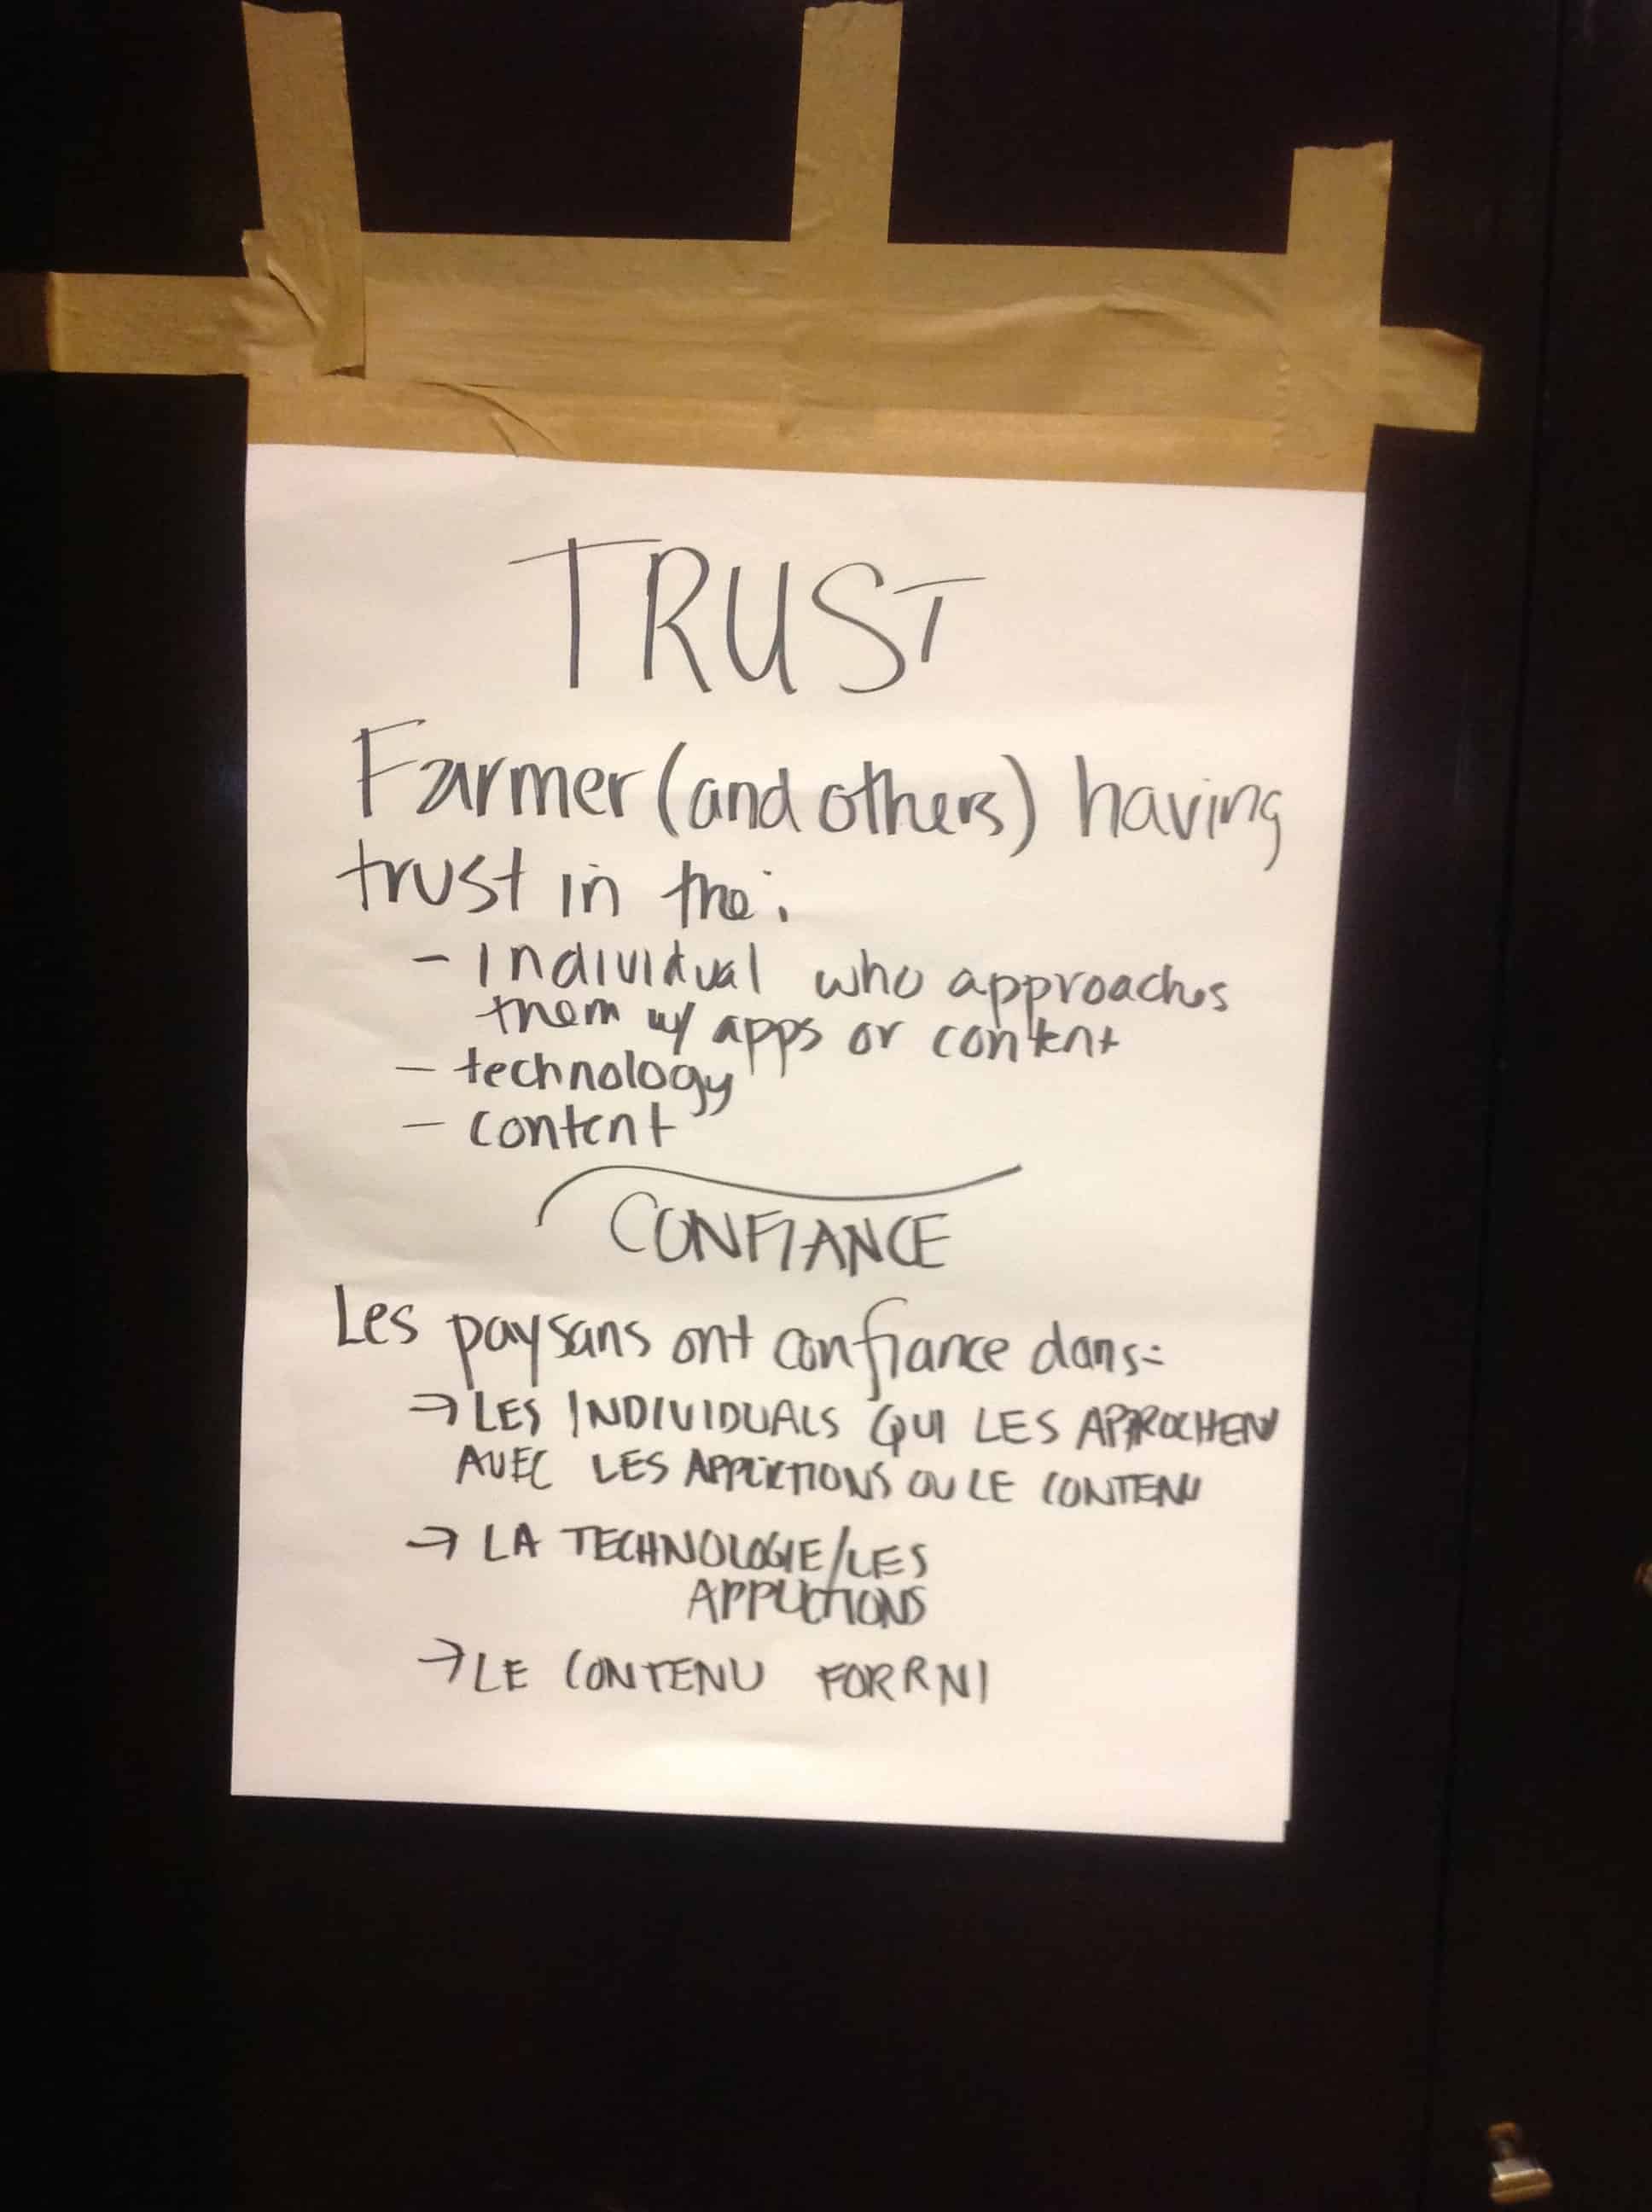 TRUST
Farmer (and others) having
trust in the:
- Individual who approaches
them w/ apps or content
- technology
- content
CONFIANCE
Les paysans ont confiance dans:
→ LES INDIVIDUALS QUI LES APPROCHENT
AVEC LES APPLICTIONS OU LE CONTENU
→ LA TECHNOLOGIE/LES
APPLICTIONS
→ LE CONTENU FORRNI